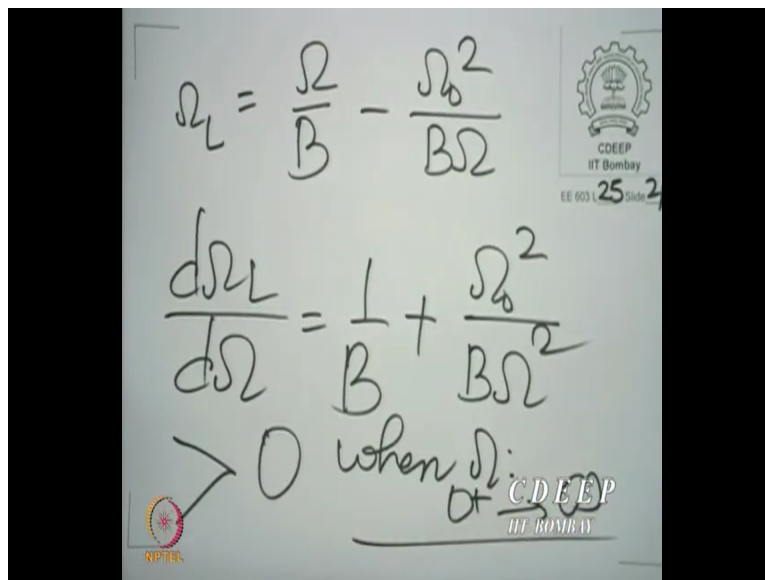 Ω_L = Ω/B − Ω₀²/BΩ
CDEEP
IIT Bombay
EE 603 L 25 Slide 2
dΩ_L/dΩ = 1/B + Ω₀²/BΩ²
> 0 when Ω:
0+ → ∞
CDEEP
IIT BOMBAY
NPTEL